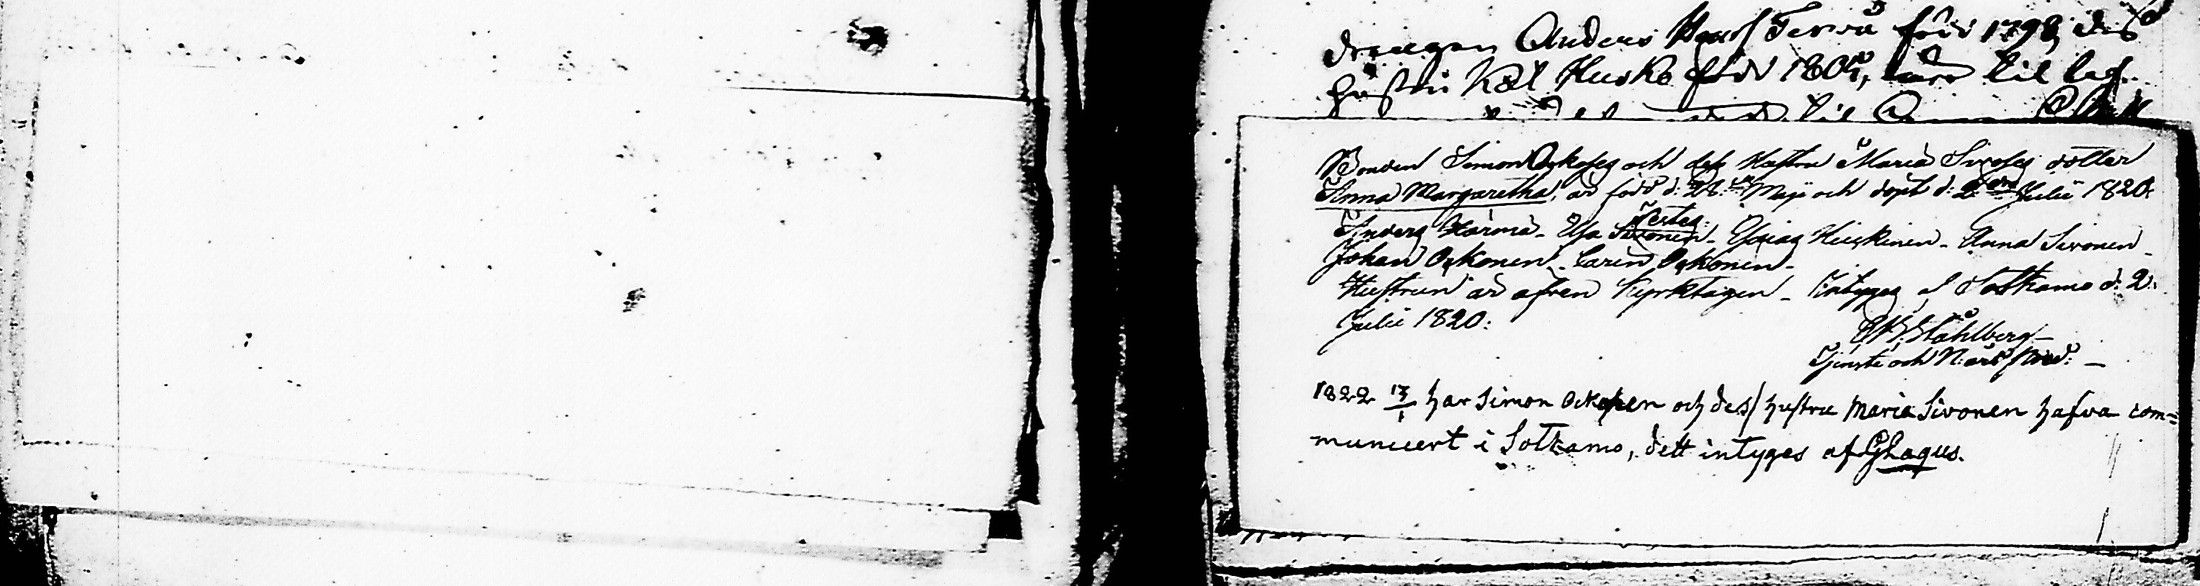 drengen Anders Terwa född 1798, dess
hustru född 1805, til
Bonden Simon Ockoses och dess Hustru Maria Sivoses dotter
Anna Margaretha, är född d: Maji och döpt d: 2 Julii 1820.
Testes
Anders Härmä - Sivonen - Esaias Heiskinen - Anna Sivonen -
Johan Ockonen - Carin Ockonen -
Hustrun är äfven kyrktagen - Intygas af Sotkamo d: 2:
Julii 1820:
Ståhlberg -
Tjenste och
1822 13/1 har Simon Ockonen och dess hustru Maria Sivonen hafva com=
municert i Sotkamo, dett intyges af GLagus.